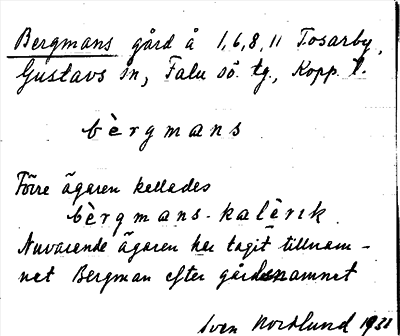 Bergmans gård å 1,6,8,11 Tosarby,
Gustavs sn, Falu sö. tg., Kopp. l.
bèrgmans
Förre ägaren kallades
bèrgmans-kalèrɩk
Nuvarende ägaren har tagit tillnam-
net Bergman efter gårdsnamnet
Sven Nordlund 1931